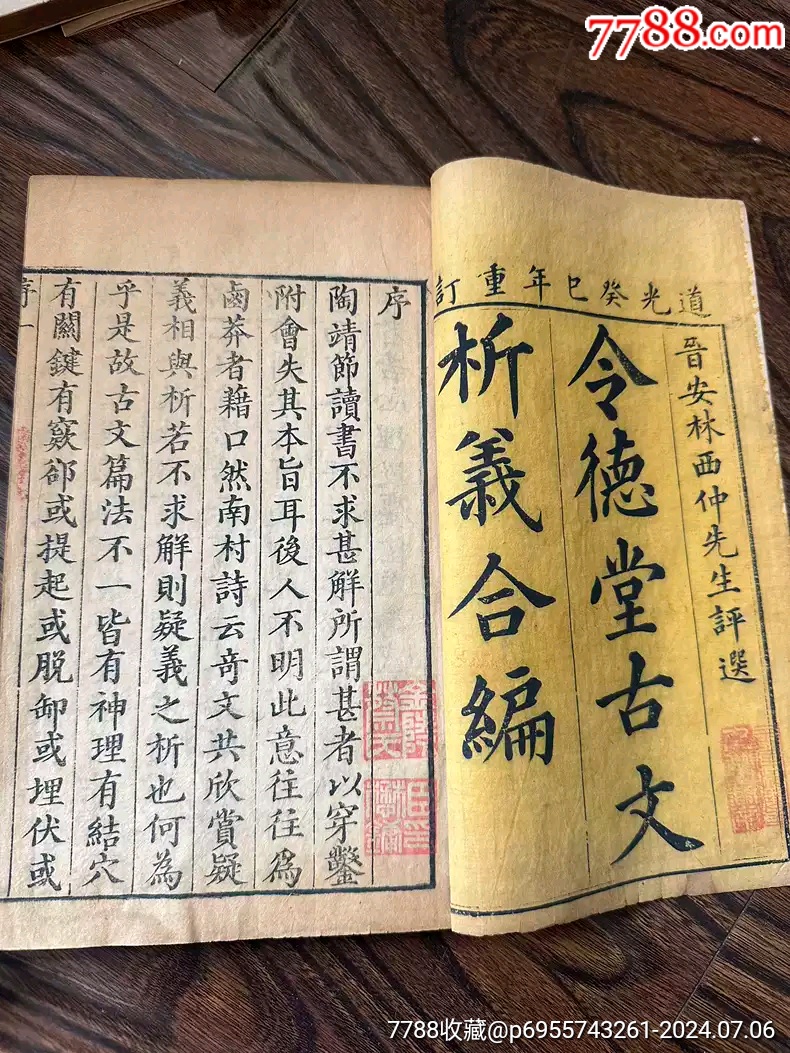 7788.com
道光癸巳年重訂
晉安林西仲先生評選
令德堂古文
析義合編
序
陶靖節讀書不求甚解所謂甚者以穿鑿
附會失其本旨耳後人不明此意往往為
鹵莽者藉口然南村詩云奇文共欣賞疑
義相與析若不求解則疑義之析也何為
乎是故古文篇法不一皆有神理有結穴
有關鍵有窾郤或提起或脫卸或埋伏或
序一
7788收藏@p6955743261-2024.07.06